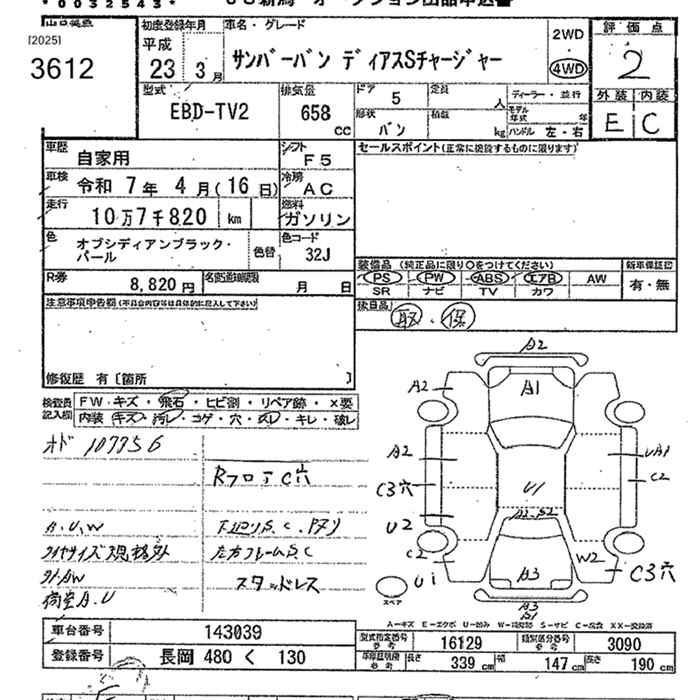 *0032543*
[2025]
3612
初度登録年月
平成
23 年 3 月
車名・グレード
サンバーバン ディアスSチャージャー
2WD
4WD
評価点
2
外装 内装
E C
型式
EBD-TV2
排気量
658 cc
ドア
5
定員
人
形状
バン
積載
kg
ディーラー・並行
モデル年式
年
ハンドル 左・右
車歴
自家用
シフト
F5
車検
令和 7年 4月(16日)
冷房
AC
走行
10万7千820 km
燃料
ガソリン
色
オブシディアンブラック・パール
色替
色コード
32J
R券
8,820円
名変期限
月 日
セールスポイント(正常に機能するものに限ります)
装備品 (純正品に限り○をつけてください)
PS PW ABS エアB AW
SR ナビ TV カワ
新車保証書
有・無
後日品
取・保
注意事項申告欄
修復歴 有〔箇所 〕
検査員記入欄
FW キズ・飛石・ヒビ割・リペア跡・×要
内装 キズ・汚レ・コゲ・穴・スレ・キレ・破レ
オド 107756
Rフロア C穴
A.U.W
下廻りS.C
タイヤサイズ規格外
左右フレームS.C
社外AW
スタッドレス
荷室A.U
A2
A2
A1
A2
UA1
C2
C3穴
U1
U2
A2
C2
W2
C3穴
U1
A3
A3
スペア
A-キズ E-エクボ U-凹み W-補修跡 S-サビ C-腐食 XX-交換済
車台番号
143039
型式指定番号 参考
16129
類別区分番号 参考
3090
登録番号
長岡 480 く 130
長さ 339 cm
幅 147 cm
高さ 190 cm